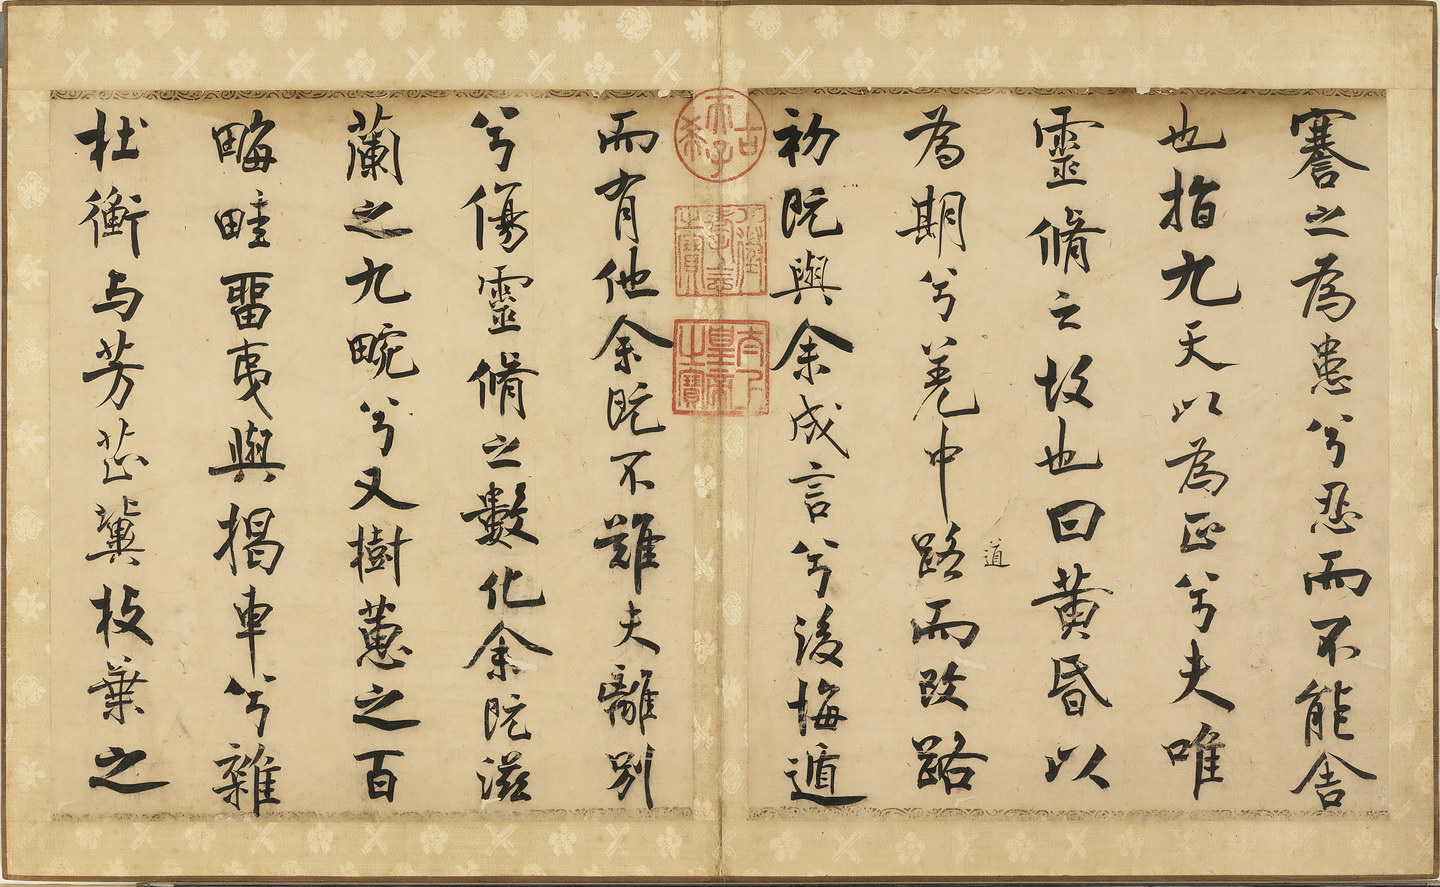 謇之為患兮忍而不能舍
也指九天以為正兮夫唯
靈脩之故也曰黃昏以
為期兮羌中路而改路
道
初既與余成言兮後悔遁
古希天子
八徵耄念之寶
太上皇帝之寶
而有他余既不難夫離別
兮傷靈脩之數化余既滋
蘭之九畹兮又樹蕙之百
畮畦畱夷與揭車兮雜
杜衡与芳芷冀枝葉之